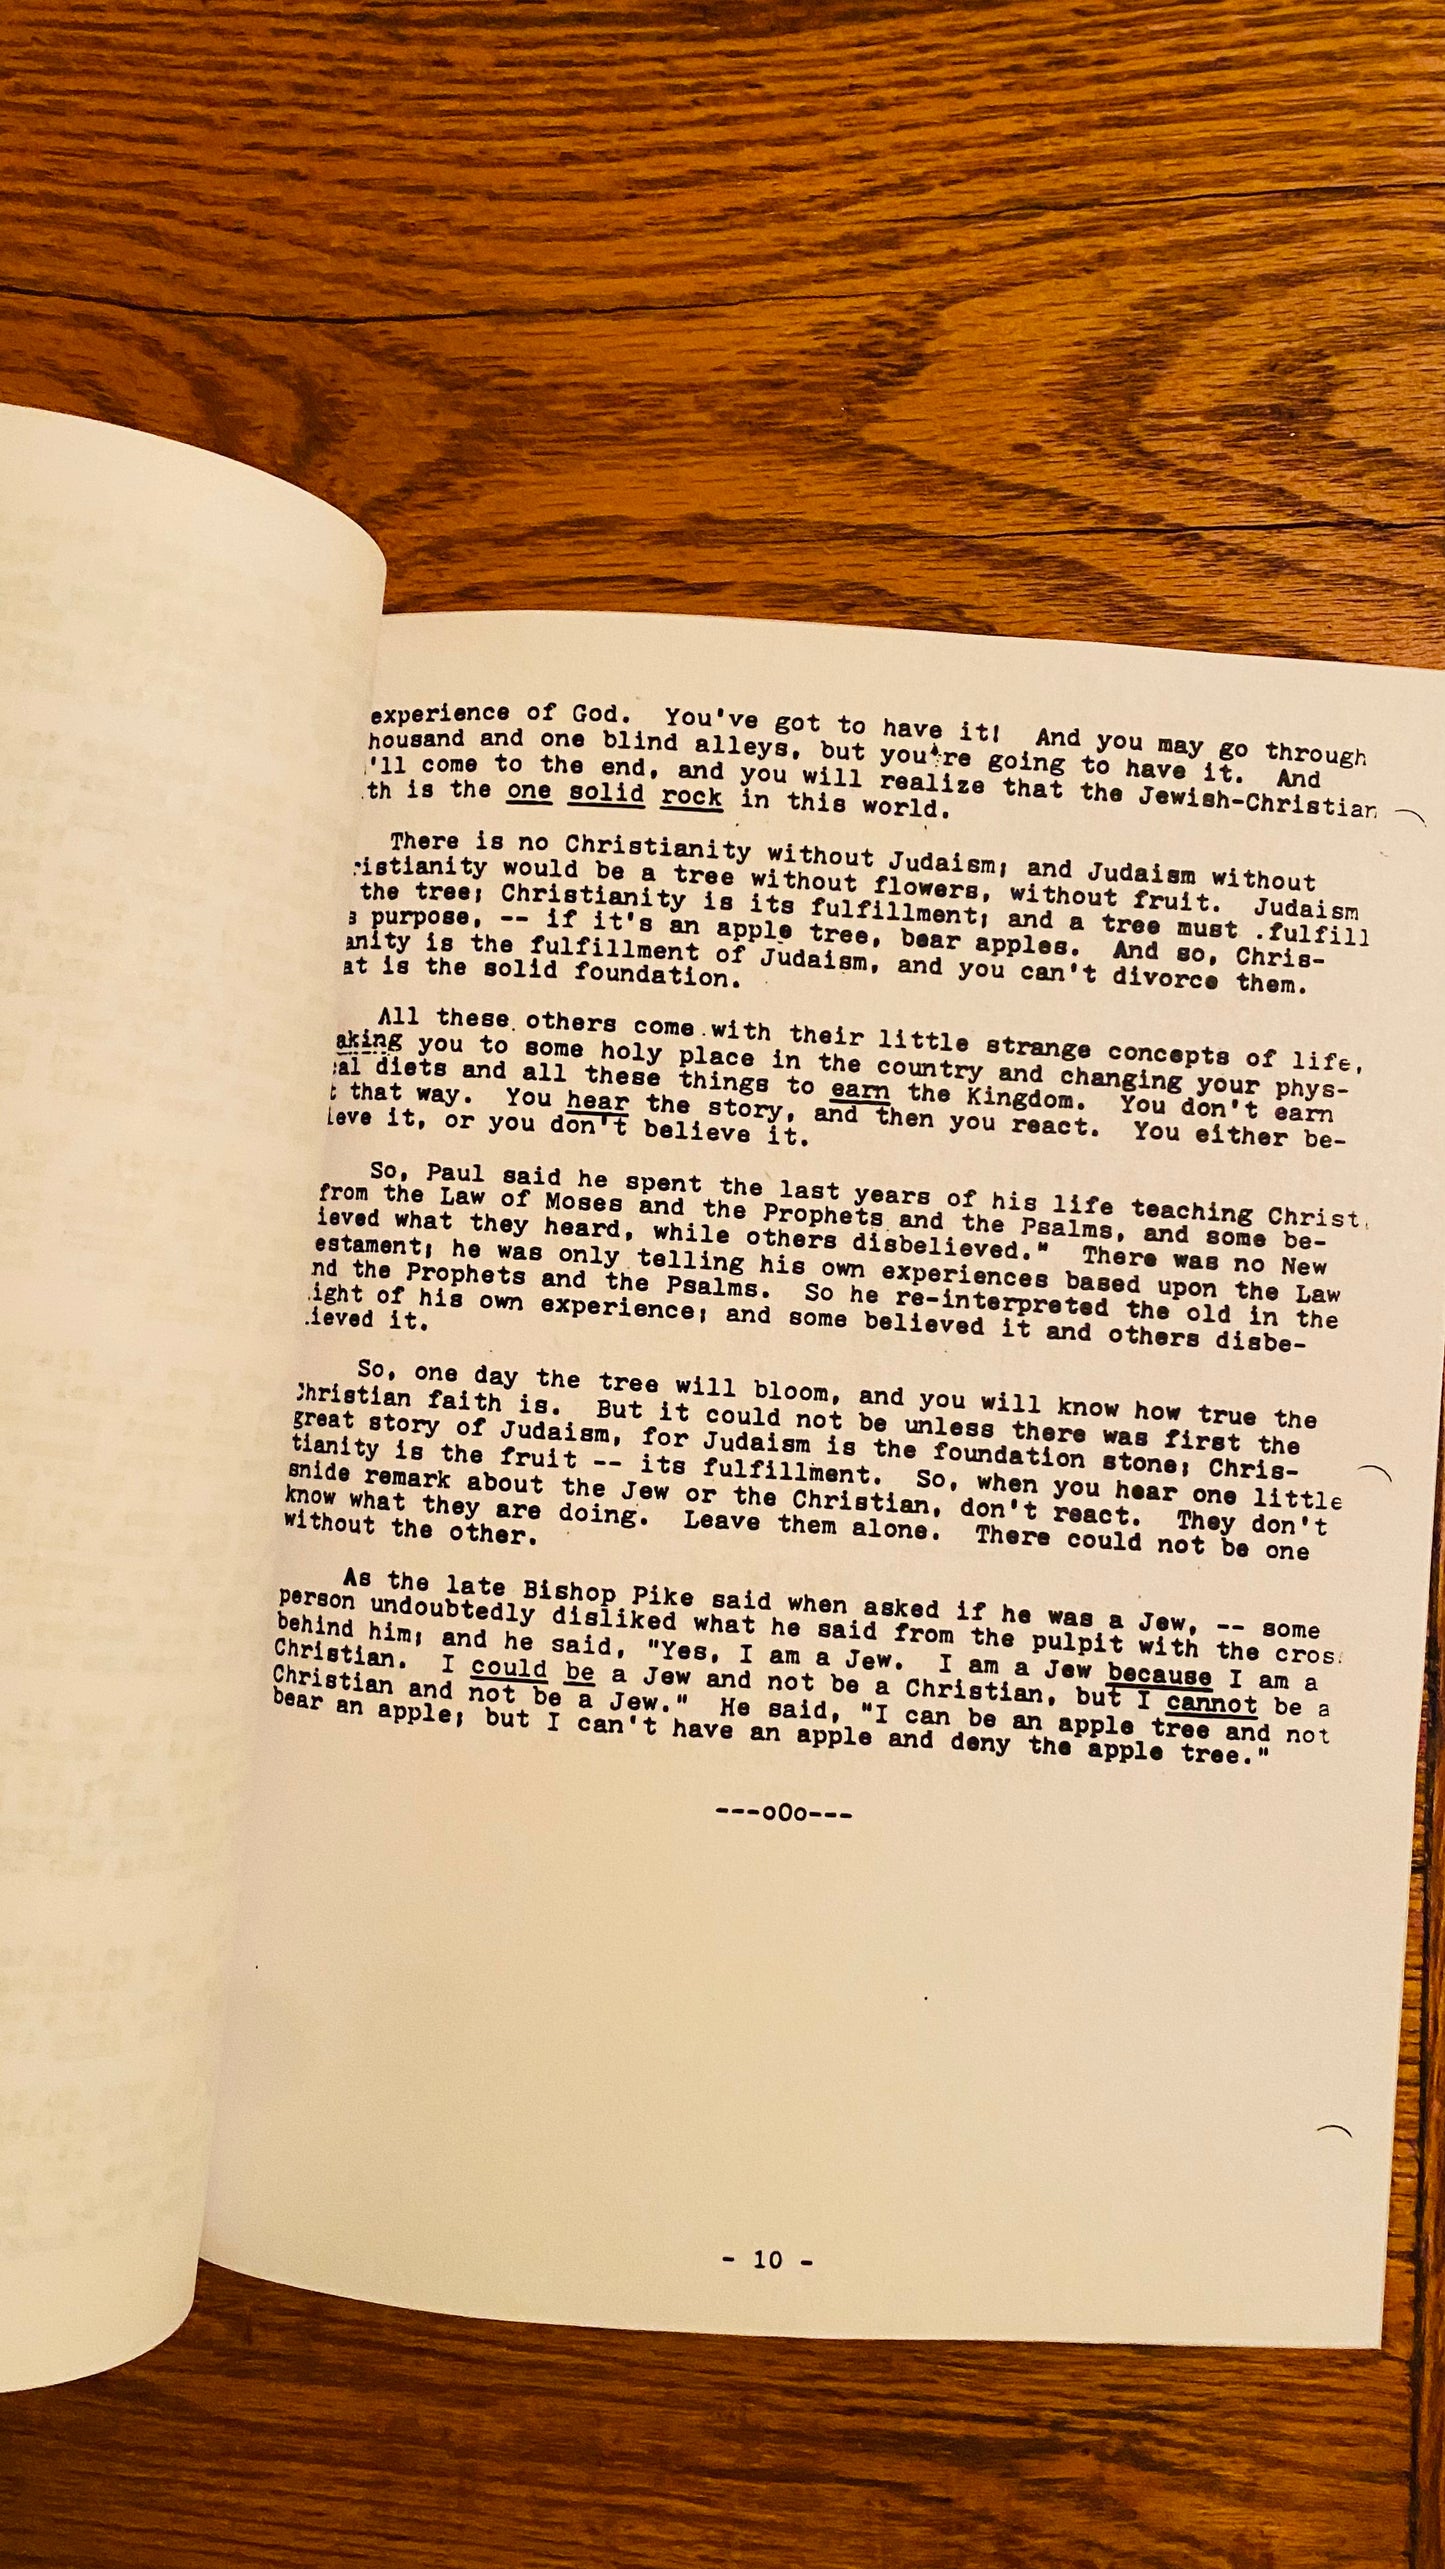 experience of God. You've got to have it! And you may go through
housand and one blind alleys, but you're going to have it. And
'll come to the end, and you will realize that the Jewish-Christian
th is the one solid rock in this world.
There is no Christianity without Judaism; and Judaism without
ristianity would be a tree without flowers, without fruit. Judaism
the tree; Christianity is its fulfillment; and a tree must .fulfill
s purpose, -- if it's an apple tree, bear apples. And so, Chris-
anity is the fulfillment of Judaism, and you can't divorce them.
at is the solid foundation.
All these others come with their little strange concepts of life,
aking you to some holy place in the country and changing your phys-
cal diets and all these things to earn the Kingdom. You don't earn
t that way. You hear the story, and then you react. You either be-
ieve it, or you don't believe it.
So, Paul said he spent the last years of his life teaching Christ
from the Law of Moses and the Prophets and the Psalms, and some be-
ieved what they heard, while others disbelieved." There was no New
estament; he was only telling his own experiences based upon the Law
nd the Prophets and the Psalms. So he re-interpreted the old in the
ight of his own experience; and some believed it and others disbe-
ieved it.
So, one day the tree will bloom, and you will know how true the
Christian faith is. But it could not be unless there was first the
great story of Judaism, for Judaism is the foundation stone; Chris-
tianity is the fruit -- its fulfillment. So, when you hear one little
snide remark about the Jew or the Christian, don't react. They don't
know what they are doing. Leave them alone. There could not be one
without the other.
As the late Bishop Pike said when asked if he was a Jew, -- some
person undoubtedly disliked what he said from the pulpit with the cros
behind him; and he said, "Yes, I am a Jew. I am a Jew because I am a
Christian. I could be a Jew and not be a Christian, but I cannot be a
Christian and not be a Jew." He said, "I can be an apple tree and not
bear an apple; but I can't have an apple and deny the apple tree."
---oOo---
- 10 -